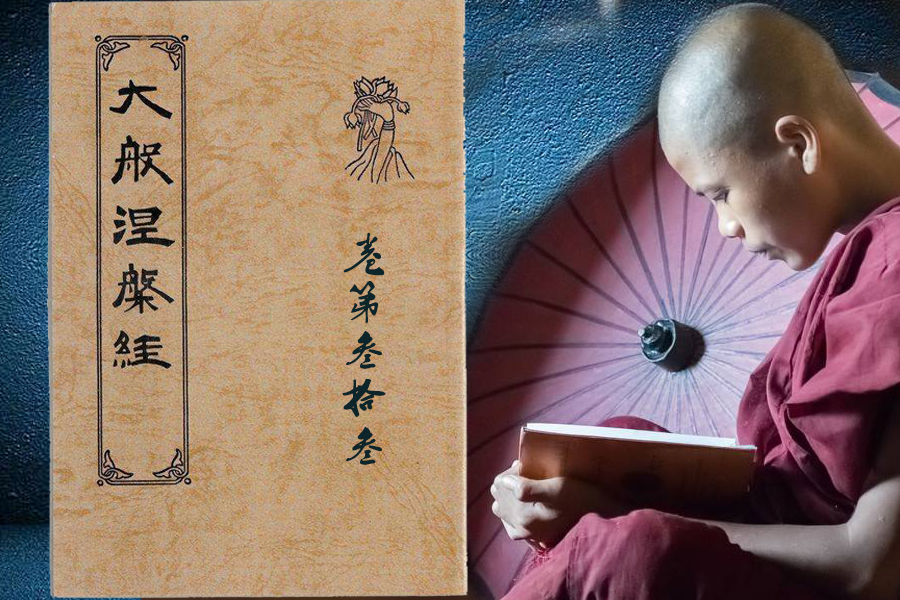 大般涅槃經
卷第叁拾叁